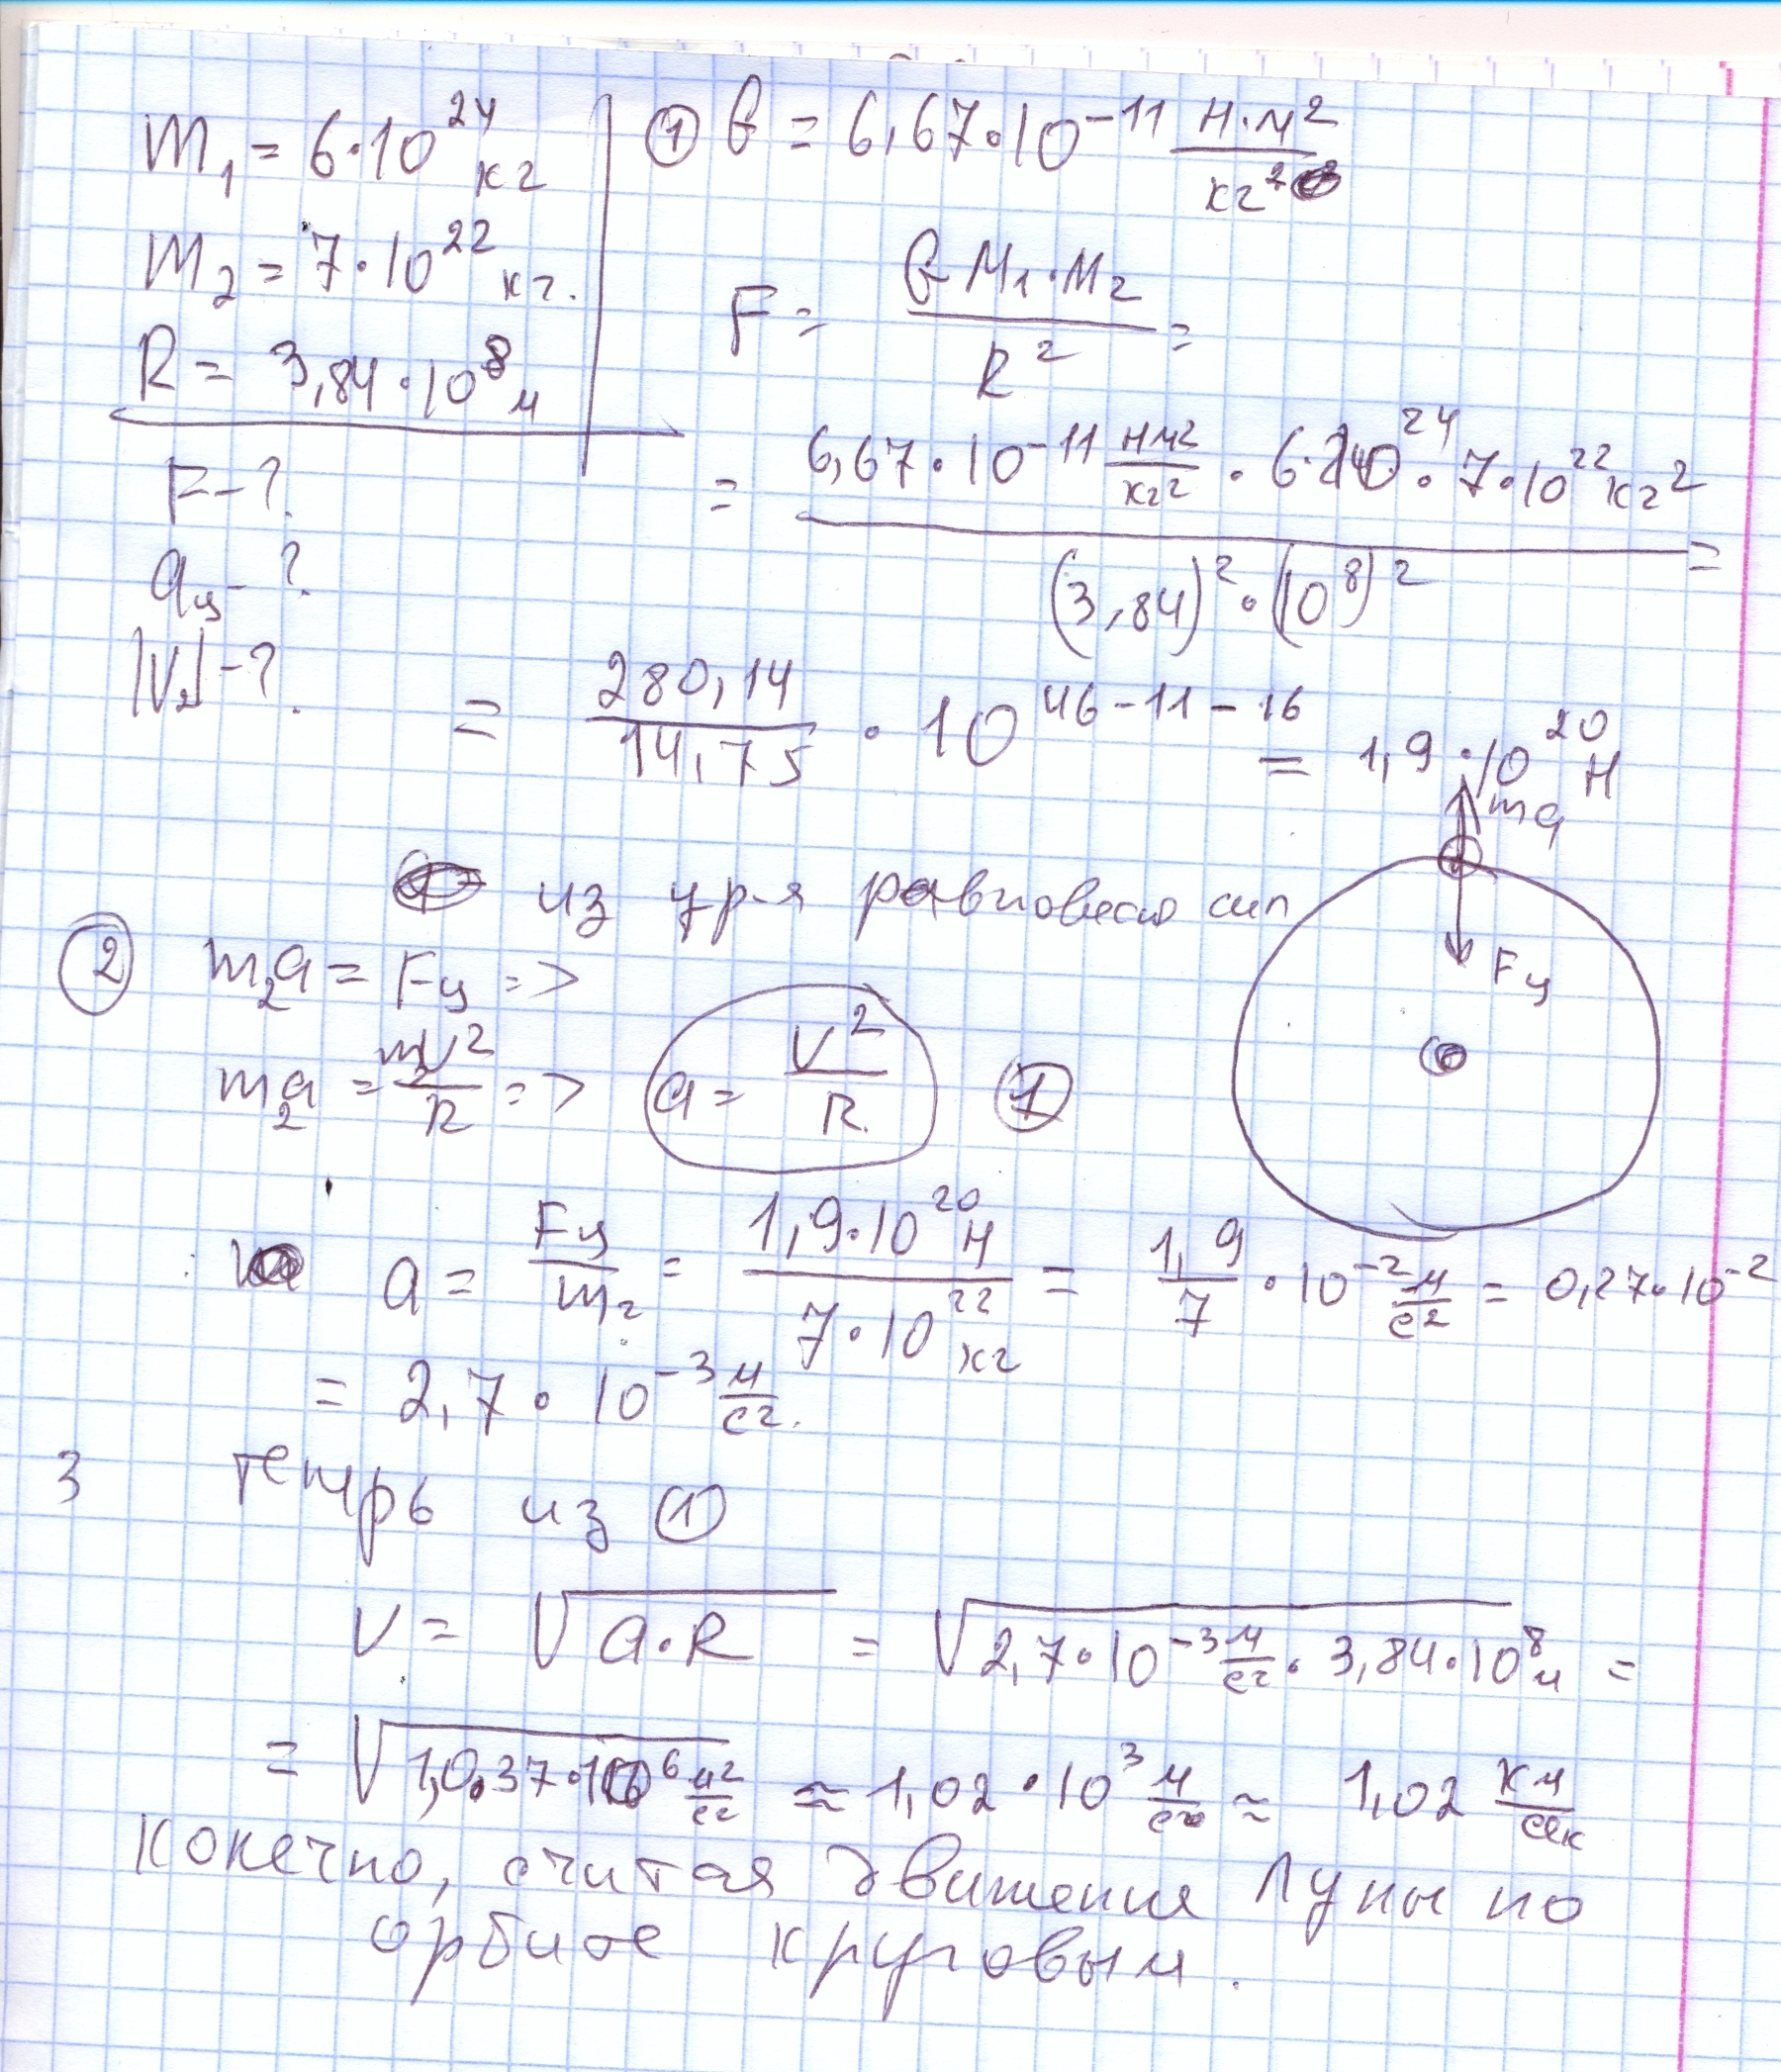 m₁ = 6·10²⁴ кг
m₂ = 7·10²² кг.
R = 3,84·10⁸ м
F - ?
aц - ?
|V₂| - ?
① G = 6,67·10⁻¹¹ Н·м²/кг²
F = G M₁·M₂ / R² =
= 6,67·10⁻¹¹ Нм²/кг² · 6·10²⁴ · 7·10²² кг² / (3,84)²·(10⁸)² =
= 280,14/14,75 · 10⁴⁶⁻¹¹⁻¹⁶ = 1,9·10²⁰ Н
ma
Fц
из ур-я равновесия сил
② m₂a = Fц =>
m₂a = m₂V²/R => a = V²/R. ①
a = Fц/m₂ = 1,9·10²⁰ Н / 7·10²² кг = 1,9/7 · 10⁻² м/с² = 0,27·10⁻²
= 2,7·10⁻³ м/с².
3 теперь из ①
V = √(a·R) = √(2,7·10⁻³ м/с² · 3,84·10⁸ м) =
= √(1,037·10⁶ м²/с²) ≈ 1,02·10³ м/с ≈ 1,02 км/сек
конечно, считая движение Луны по
орбите круговым.